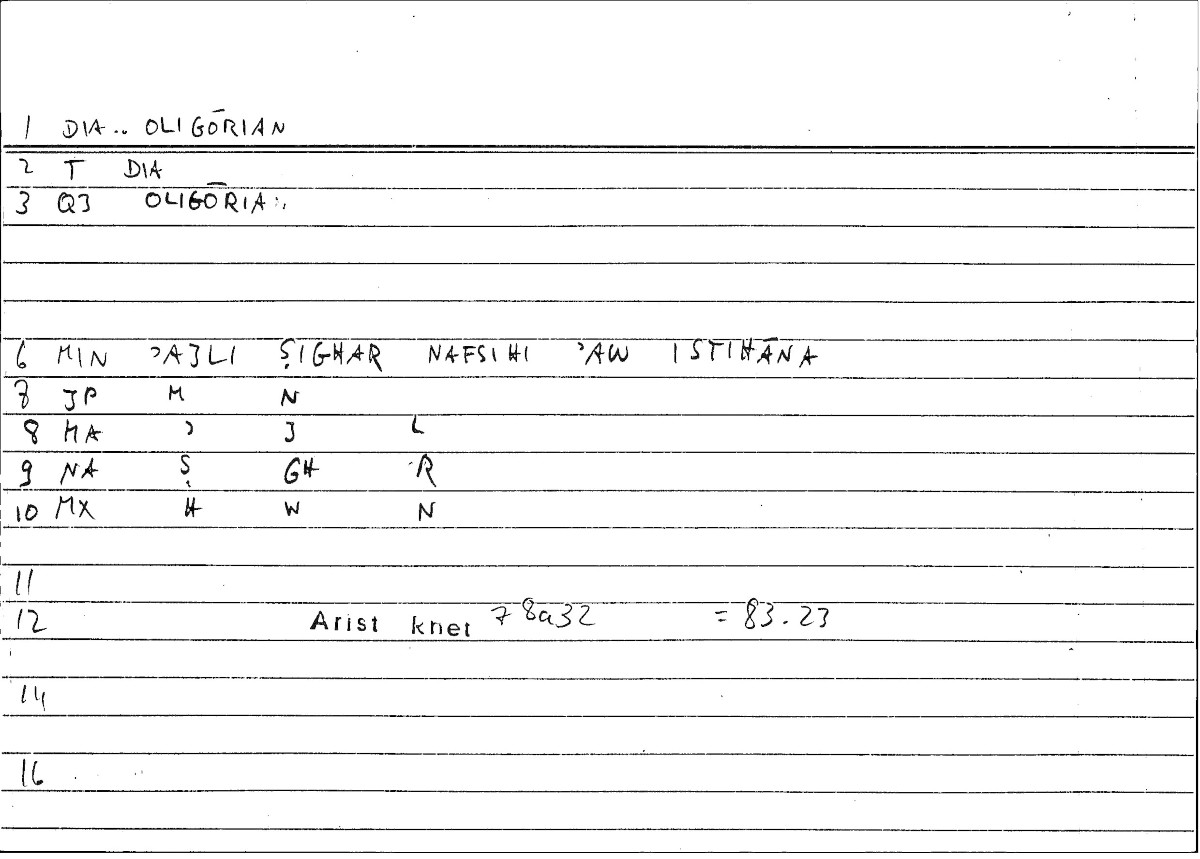 1 DIA.. OLIGŌRIAN
2 T DIA
3 Q3 OLIGŌRIA:.
6 MIN ʾAJLI ṢIGHAR NAFSIHI ʾAW ISTIHĀNA
7 JP M N
8 MA ʾ J L
9 NA Ṣ GH R
10 MX H W N
11
12 Arist khet 78a32 = 83.23
14
16